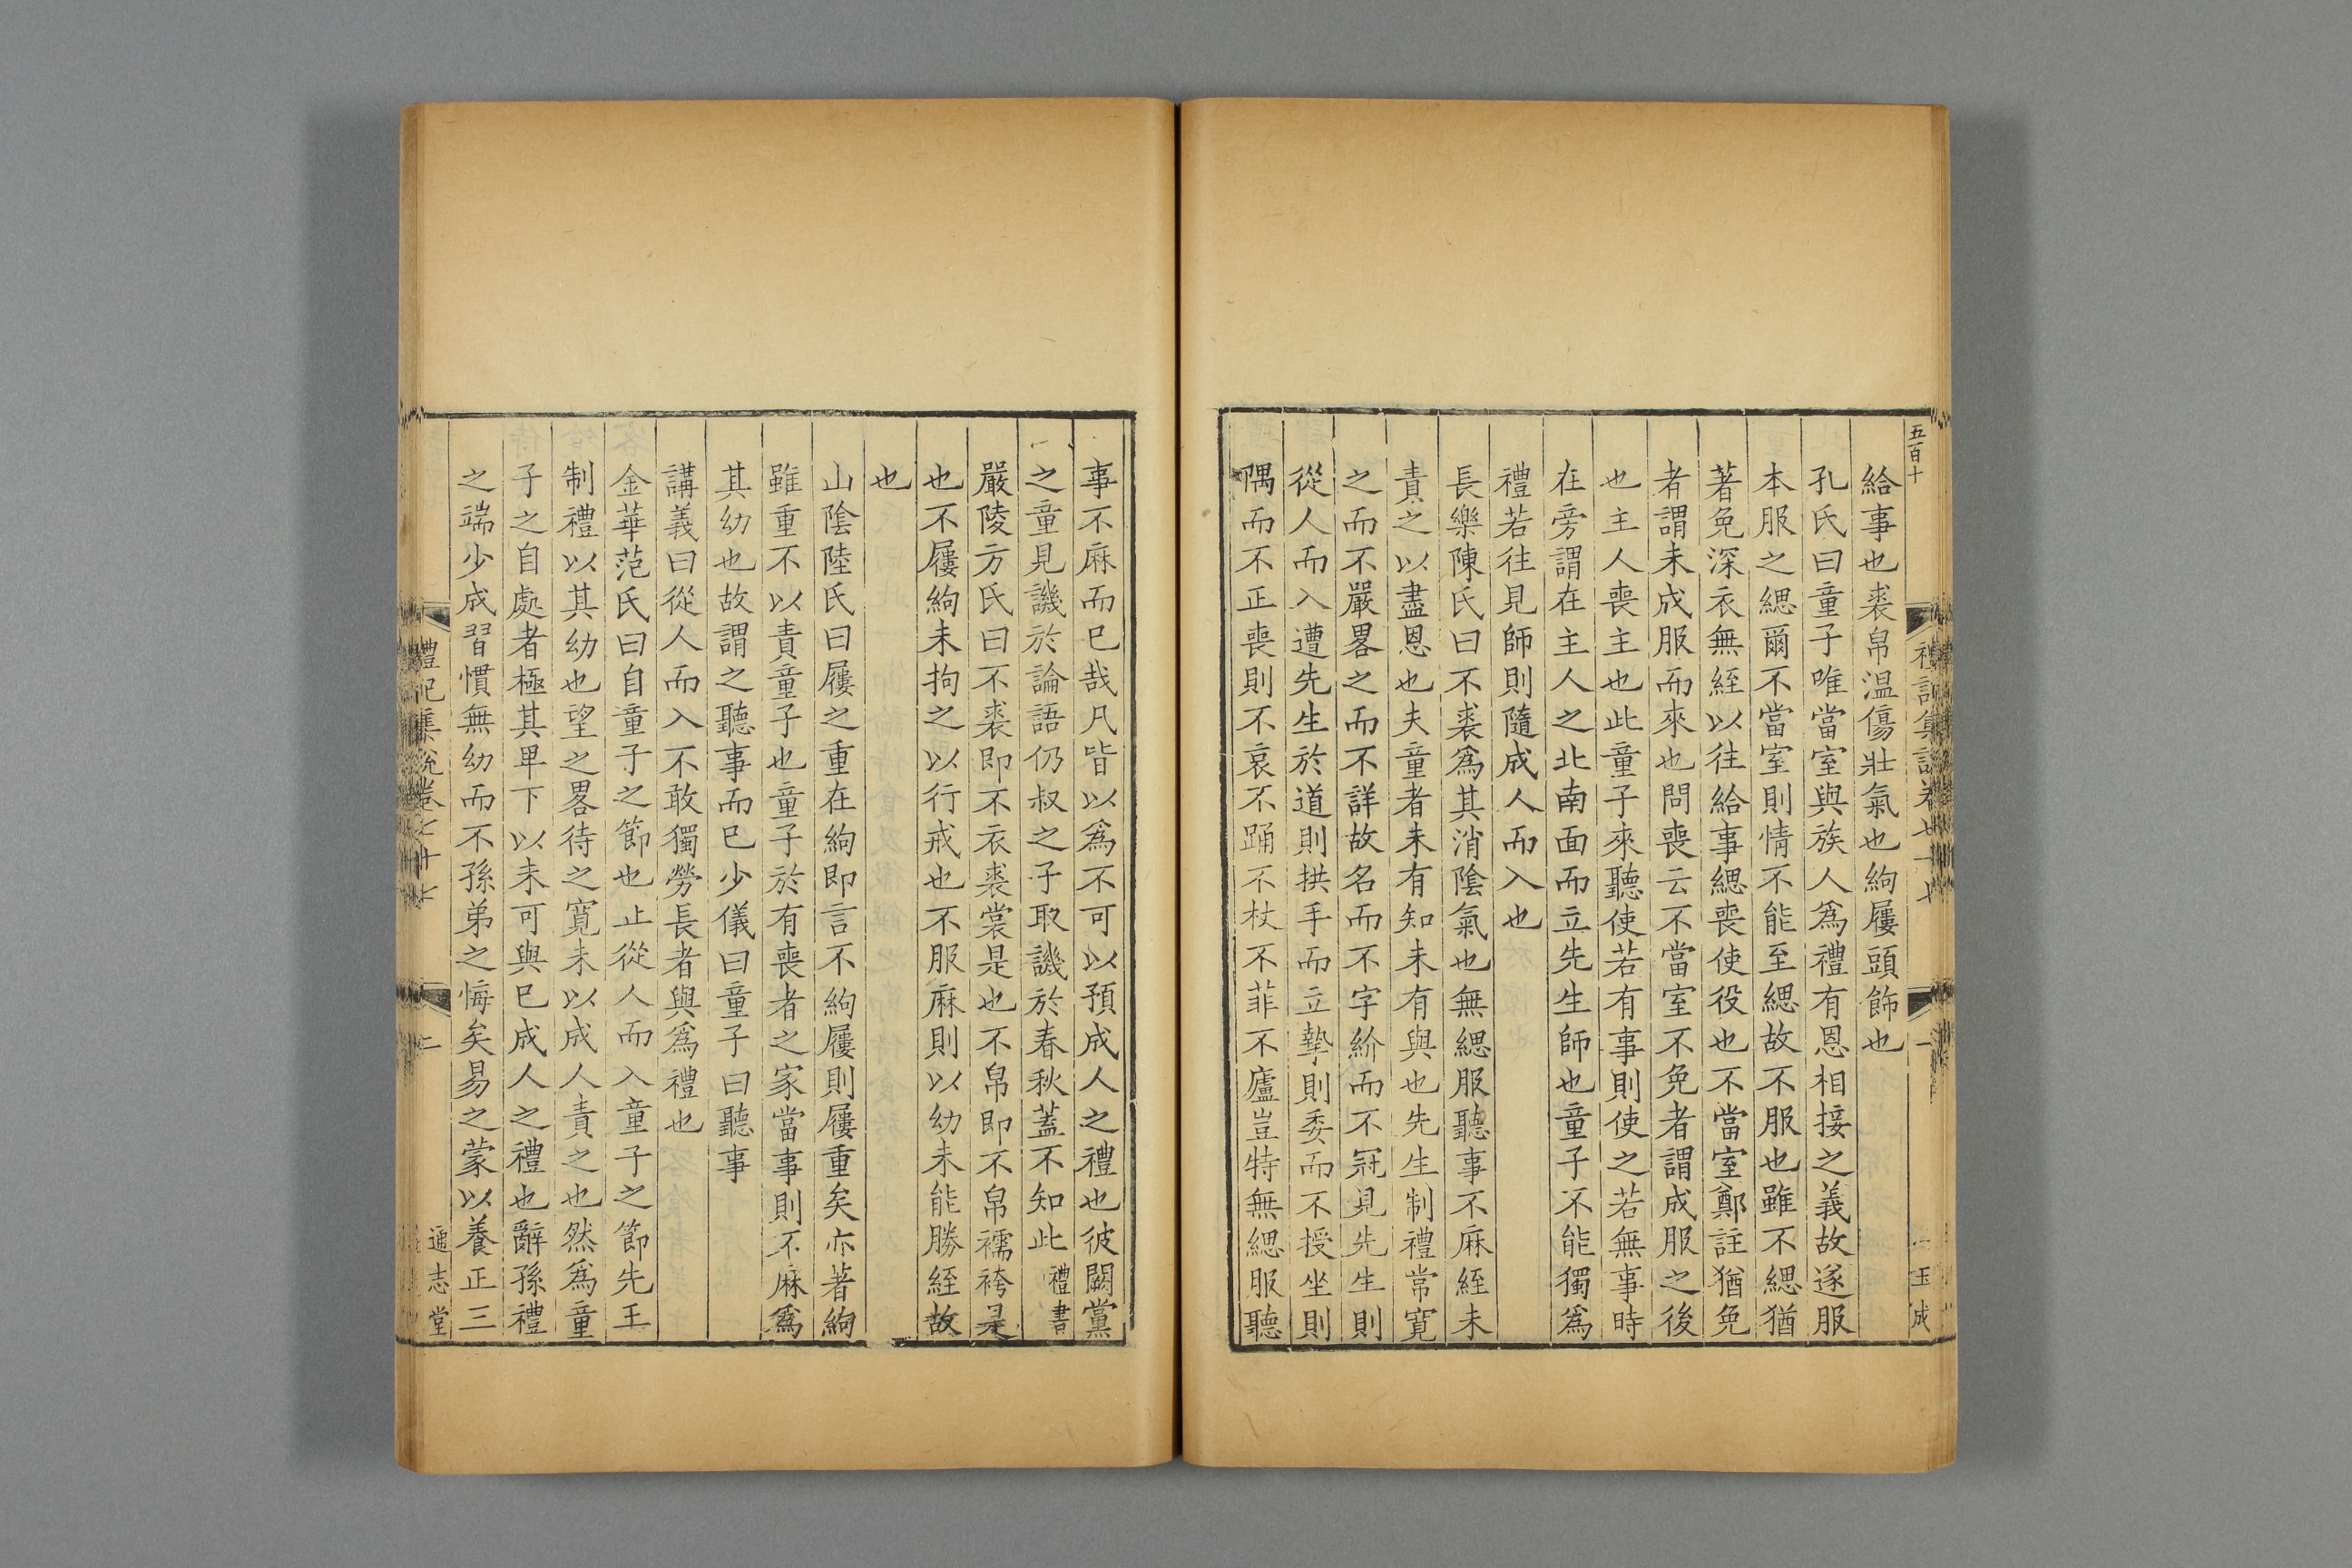 五百十
禮記集說卷七十七
一
玉成
給事也裘帛温傷壯氣也絇屨頭飾也
孔氏曰童子唯當室與族人爲禮有恩相接之義故遂服
本服之緦爾不當室則情不能至緦故不服也雖不緦猶
著免深衣無絰以往給事緦喪使役也不當室鄭註猶免
者謂未成服而來也問喪云不當室不免者謂成服之後
也主人喪主也此童子來聽使若有事則使之若無事時
在旁謂在主人之北南面而立先生師也童子不能獨爲
禮若往見師則隨成人而入也
長樂陳氏曰不裘爲其消陰氣也無緦服聽事不麻絰未
責之以盡恩也夫童者未有知未有與也先生制禮常寬
之而不嚴畧之而不詳故名而不字紒而不冠見先生則
從人而入遭先生於道則拱手而立摯則委而不授坐則
隅而不正喪則不哀不踊不杖不菲不廬豈特無緦服聽
事不麻而已哉凡皆以爲不可以預成人之禮也彼闕黨
之童見譏於論語仍叔之子取譏於春秋蓋不知此禮書
嚴陵方氏曰不裘即不衣裘裳是也不帛即不帛襦袴是
也不屨絇未拘之以行戒也不服麻則以幼未能勝絰故
也
山陰陸氏曰屨之重在絇即言不絇屨則屨重矣亦著絇
雖重不以責童子也童子於有喪者之家當事則不麻爲
其幼也故謂之聽事而已少儀曰童子曰聽事
講義曰從人而入不敢獨勞長者與爲禮也
金華范氏曰自童子之節也止從人而入童子之節先王
制禮以其幼也望之畧待之寬未以成人責之也然爲童
子之自處者極其卑下以未可與已成人之禮也辭孫禮
之端少成習慣無幼而不孫弟之悔矣易之蒙以養正三
禮記集說卷七十七
二
通志堂